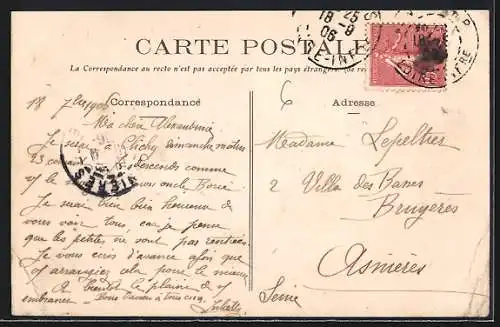 18 25
18 -9
06
LOIRE-INF
CARTE POSTALE
La Correspondance au recto n'est pas acceptée par tous les pays étrangers
18 7bre 1906
Correspondance
6
Adresse
Ma chère Alexandrine
Je serai à Clichy dimanche matin
descends comme
oncle
Je serai bien bien heureux de
vous voir tous, car je pense
que les petites ne sont pas rentrées.
Je vous écris d'avance afin que
vous arrangiez cela pour le mieux
A bientôt le plaisir de
embrasser. Bons baisers à tous cinq
Juliette
NIERES
Madame Lepeltier
2 Villa des Basses
Bruyères
Asnières
Seine